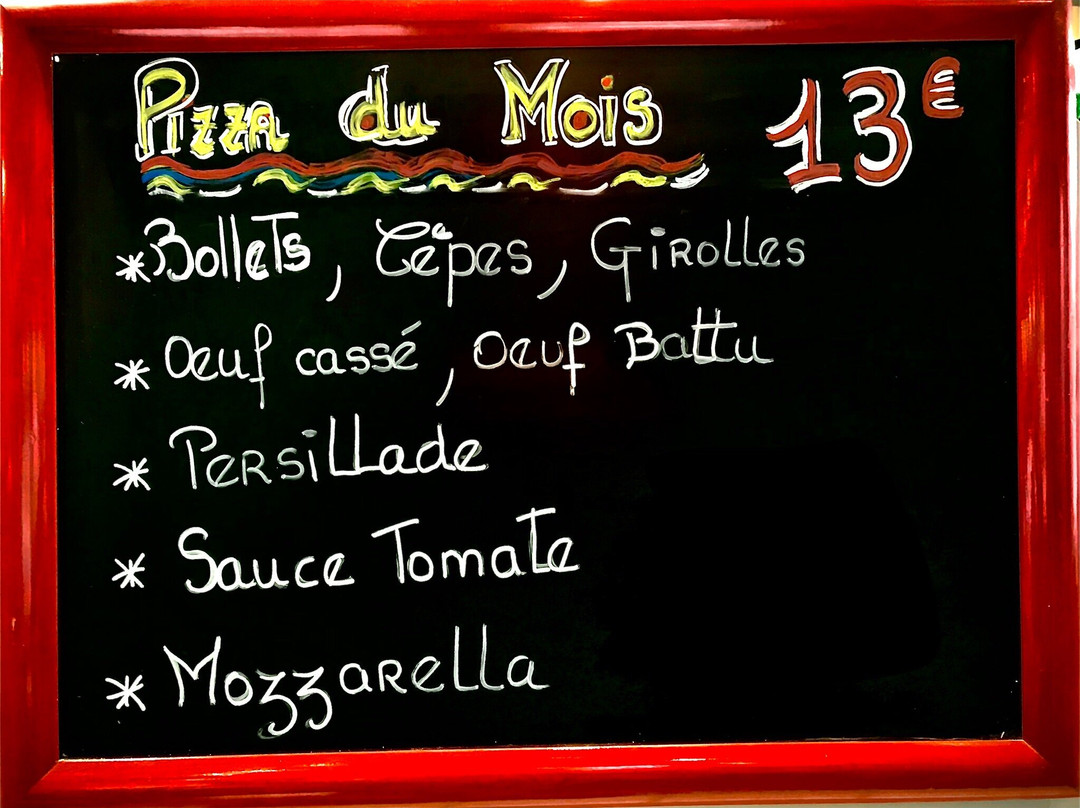 Pizza du Mois 13€
* Bollets, Cêpes, Girolles
* Oeuf cassé, Oeuf Battu
* Persillade
* Sauce Tomate
* Mozzarella